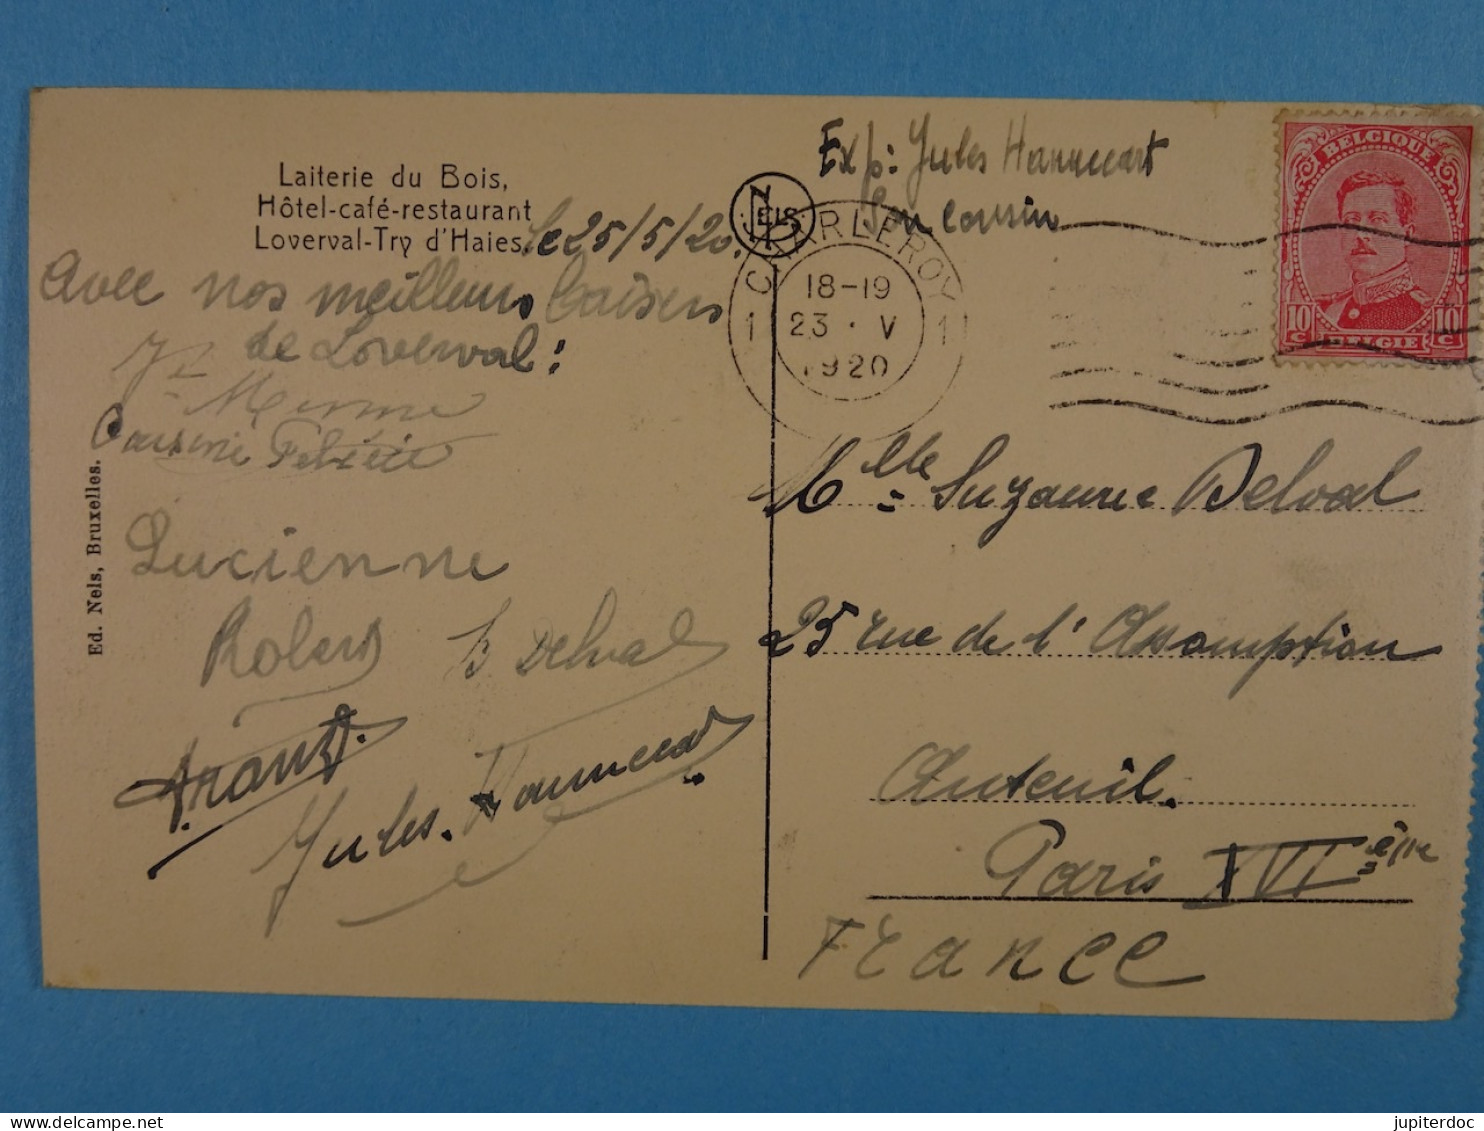 Laiterie du Bois,
Hôtel-café-restaurant
Loverval-Try d'Haies.
le 25/5/20.
Avec nos meilleurs baisers
de Loverval:
Cousine Félicie
Lucienne
Robert Delval
Franz.
Jules Hannecart
Ed. Nels, Bruxelles.
NELS
Exp: Jules Hannecart
Son Cousin
CHARLEROY
18-19
1 23·V 1
1920
BELGIQUE
10c 10c
BELGIE
Mlle Suzanne Delval
25 rue de l'Assomption
Auteuil.
Paris XVIème
France
jupiterdoc